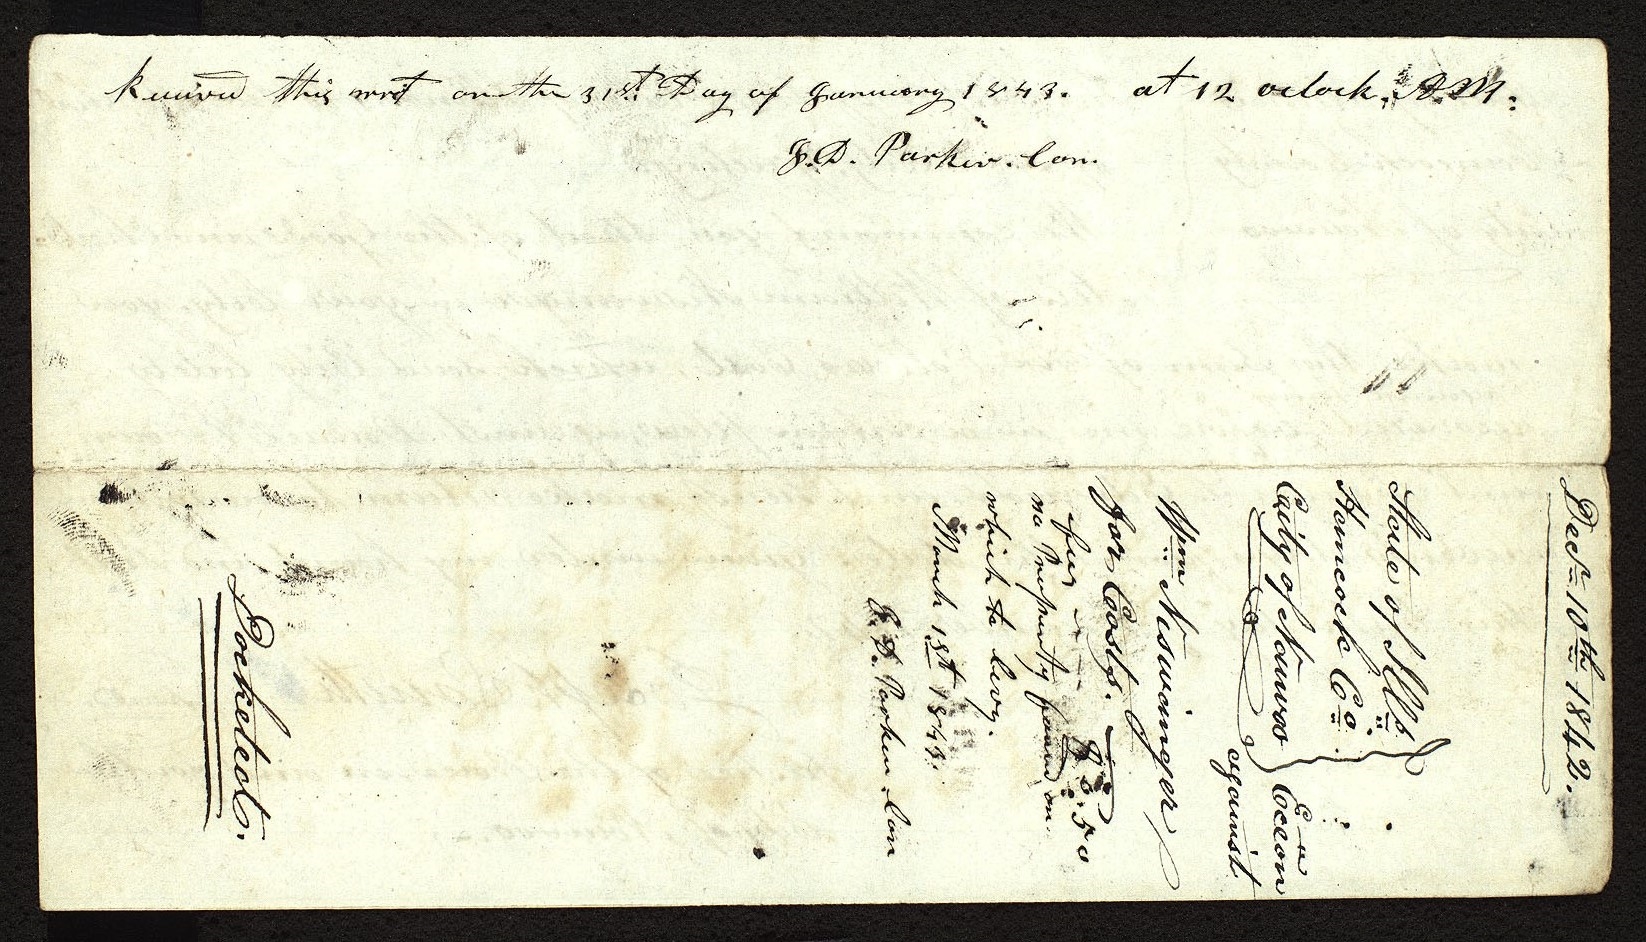 Received this writ on the 31st. Day of January 1843. at 12 oclock. A.M.
J. D. Parker. Con.
Decr= 10th 1842.
State of Ills.
Hancock Co.
City of Nauvoo
Ex=
eceon
against
Wm Niswainger
for Costs. $
fees 8.50
no Property found on
which to levy.
March 1st 1843.
J. D. Parker. Con
Docketed.